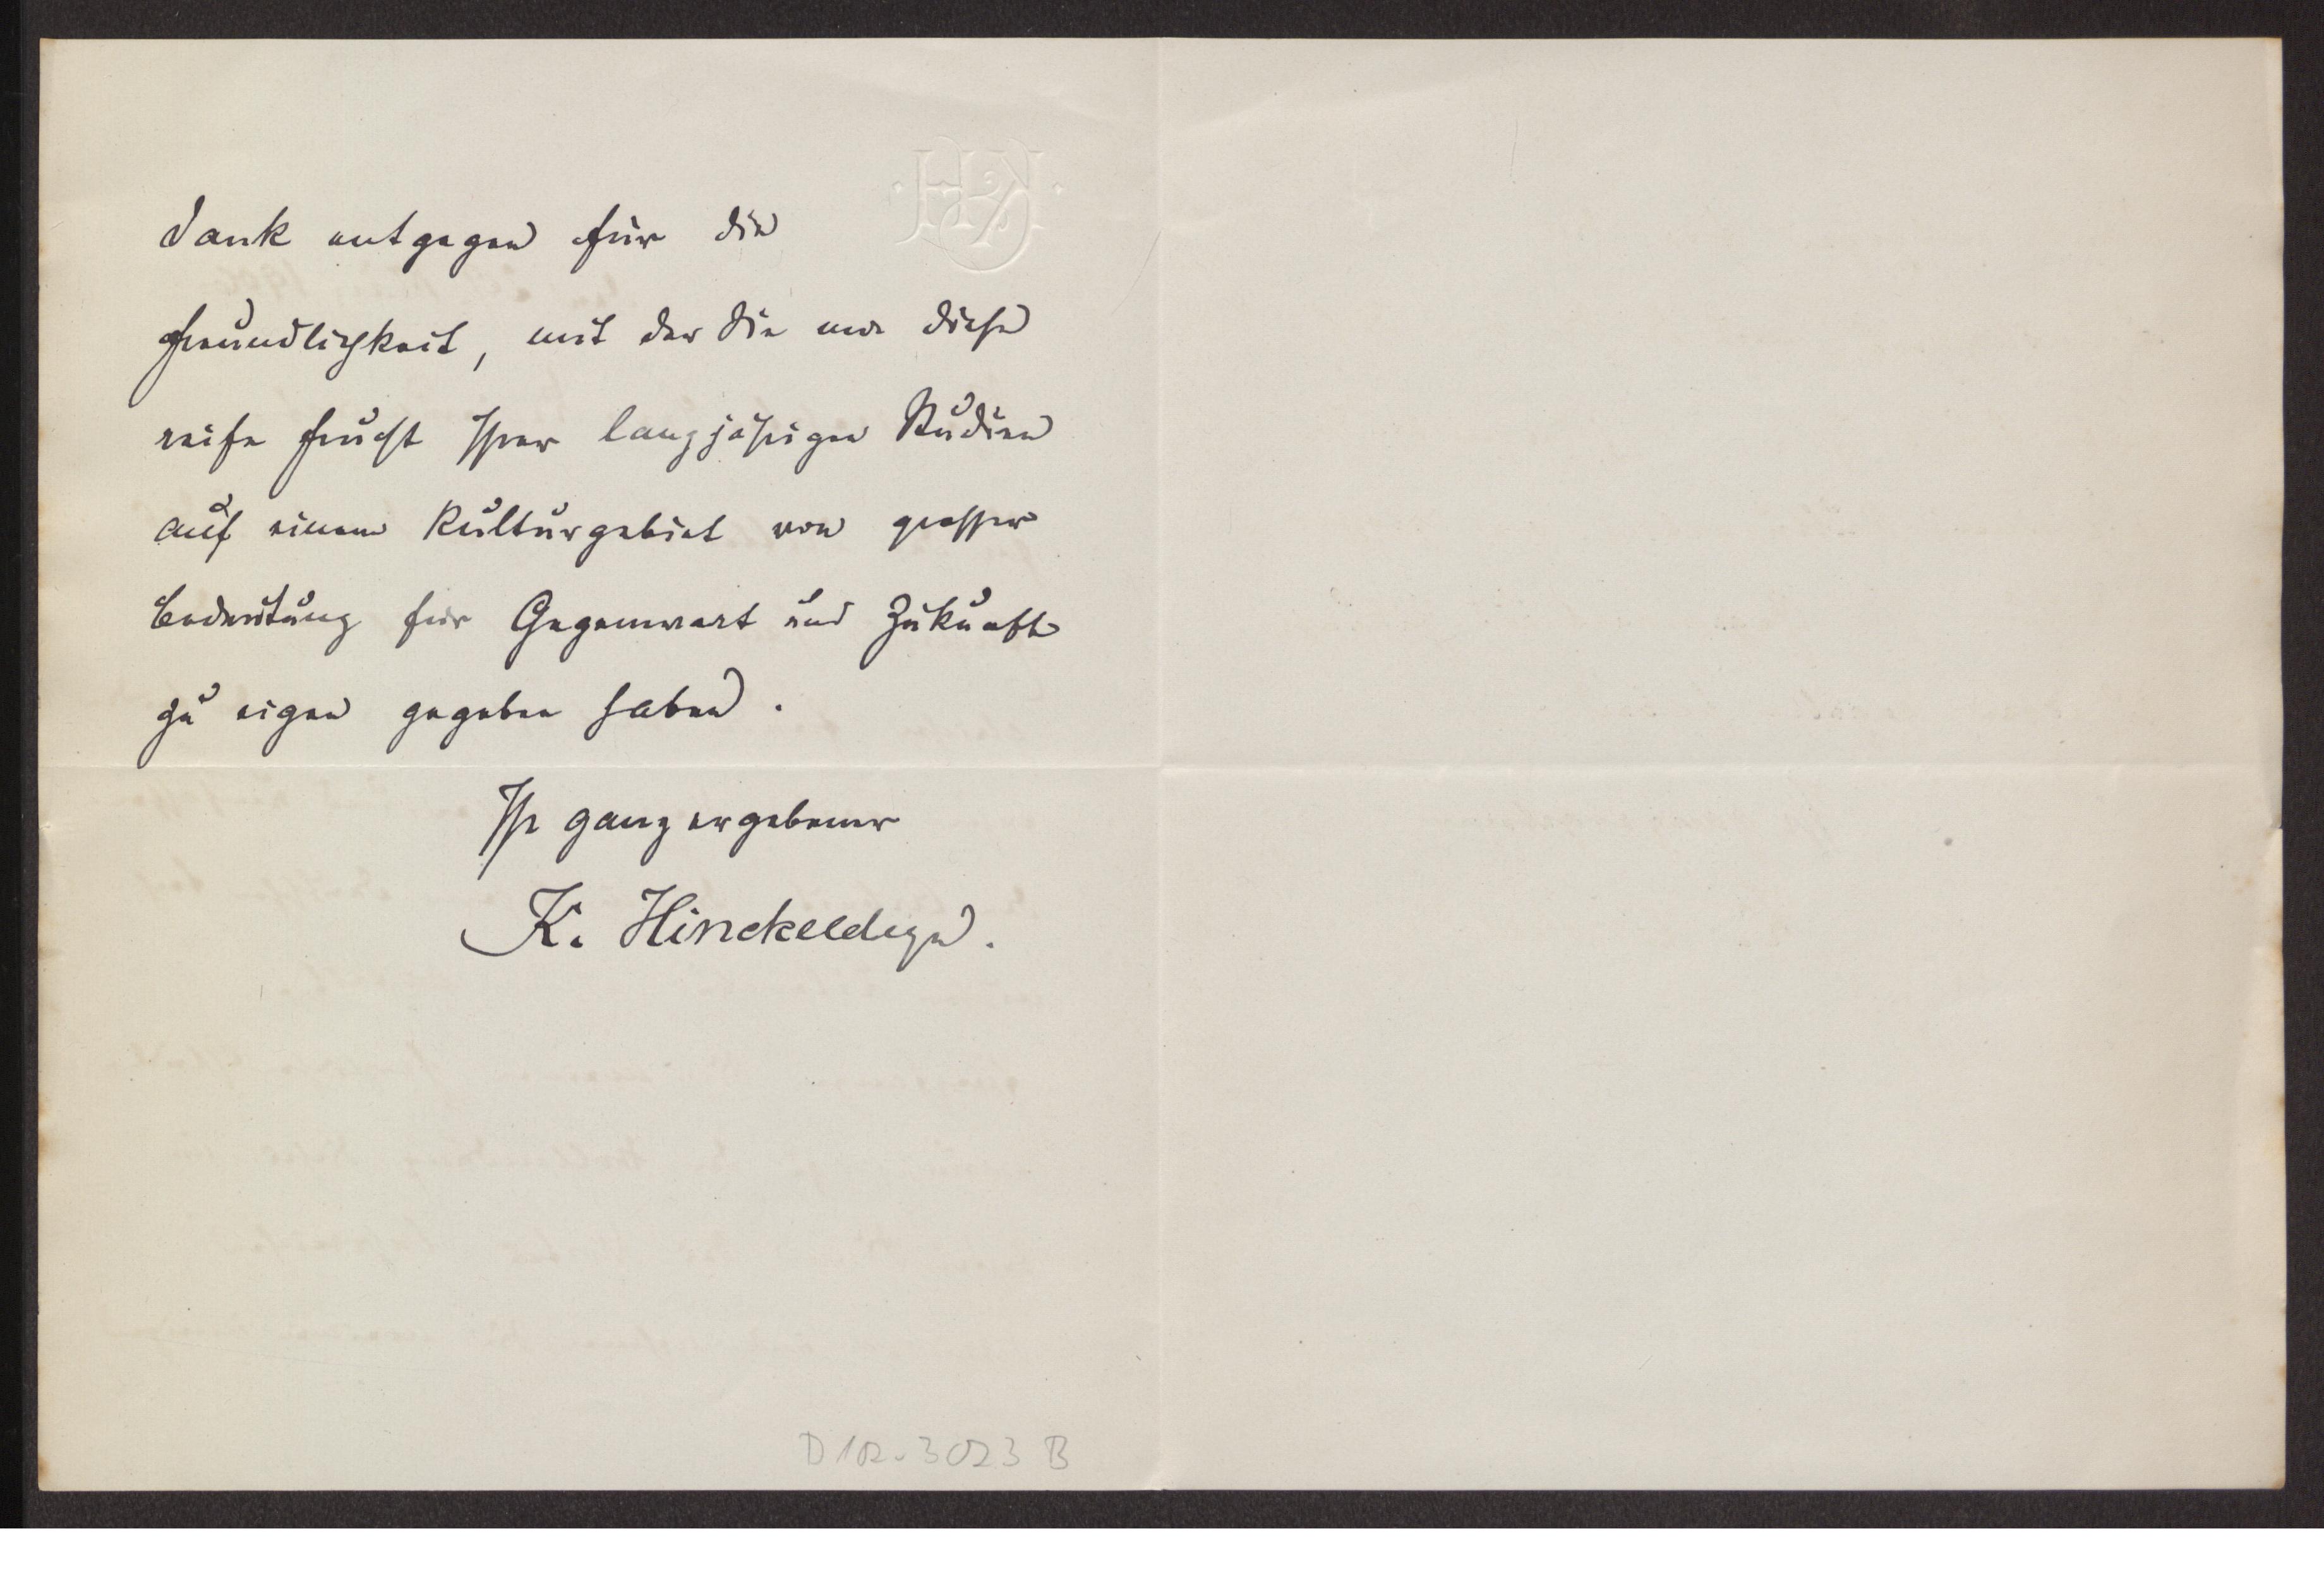 Dank entgegen für die
Freundlichkeit, mit der Sie mir diese
reife Frucht Ihrer langjährigen Studien
auf einem Kulturgebiet von grosser
Bedeutung für Gegenwart und Zukunft
zu eigen gegeben haben.
Ihr ganz ergebener
K. Hinckeldeyn.
D 102.3023 B